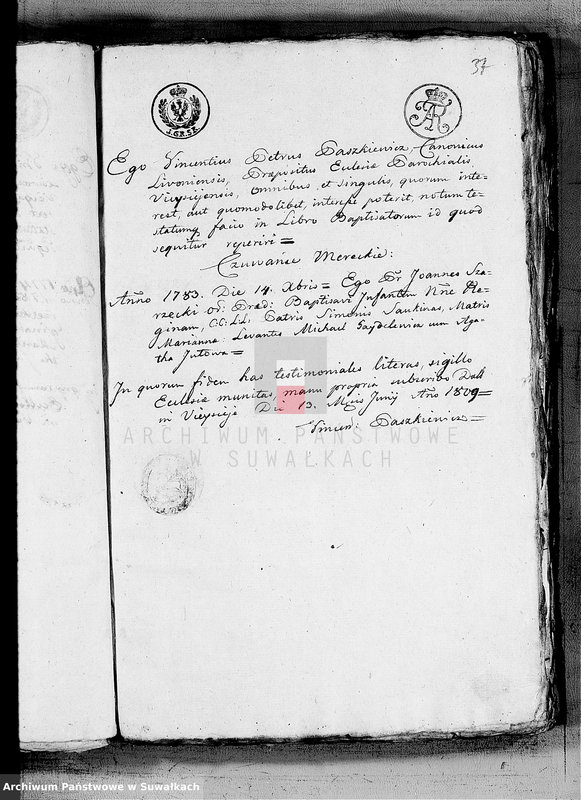 37
J.G.R.SZ.
AR
Ego Vincentius Petrus Paszkiewicz, Canonicus
Livoniensis, Præpositus Eclesiæ Parochialis
Vieysiejensis, omnibus, et singulis, quorum inte-
rest, aut quomodolibet, interesse poterit, notum te-
statumq facio in Libro Baptisatorum id quod
sequitur reperiri =
Czuwańce Mereckie:
Anno 1783. Die 14. Xbris = Ego Fr Joannes Sza-
rzecki Baptisavi Infantem Nne Re-
ginam, CC: LL: Patris Simonis Saukinas, Matris
Marianna: Levantes Michael Gaydelewicz cum Aga-
tha Jutowa =
In quorum fidem has testimoniales literas, sigillo
Eclesiæ munitas, manu propria subscribo Datt
in Vieysieje Die 13. Msis Junij Ano 1809 =
Vincen: Paszkiewicz =
ARCHIWUM PAŃSTWOWE
W SUWAŁKACH
Archiwum Państwowe w Suwałkach